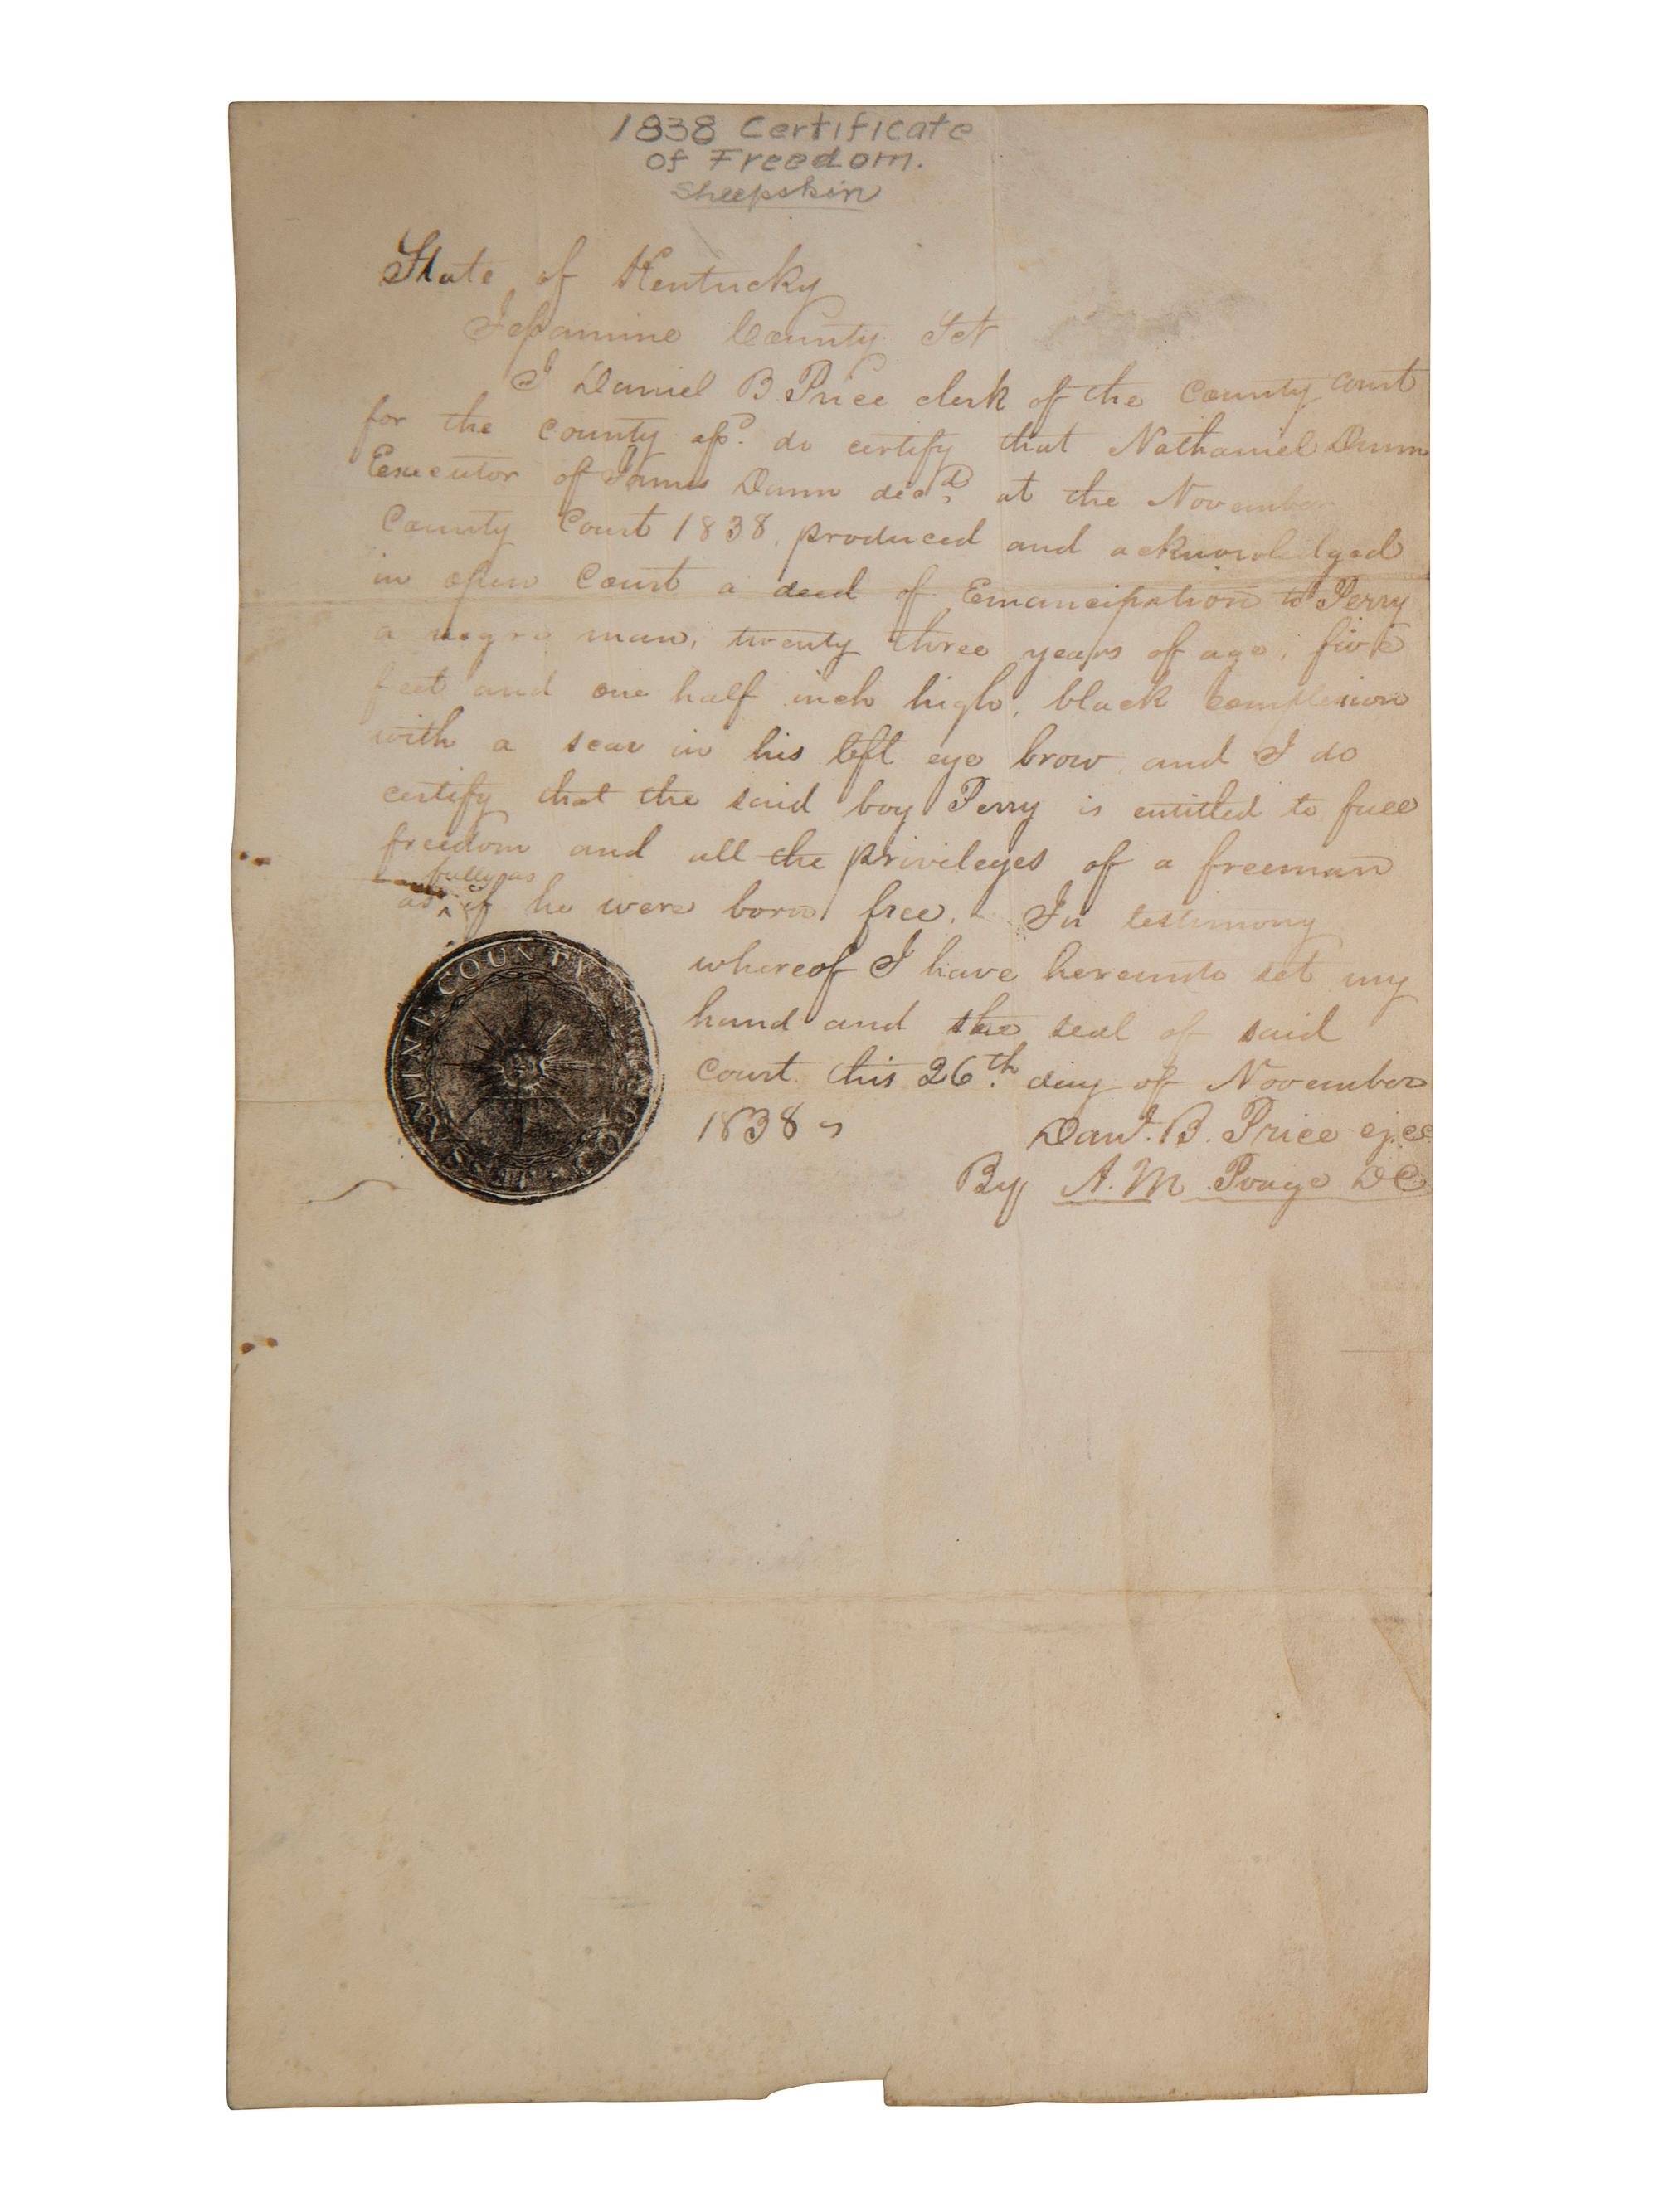 1838 Certificate
of Freedom.
Sheepskin
State of Kentucky
Jessamine County Sct
I Daniel B Price clerk of the County Court
for the county afsd. do certify that Nathaniel Dunn
Executor of James Dunn decd, at the November
County Court 1838, produced and acknowledged
in open Court a deed of Emancipation to Perry
a negro man, twenty three years of age, five
feet and one half inch high, black complexion
with a scar in his left eye brow, and I do
certify that the said boy Perry is entitled to full
freedom and all the privileges of a freeman
fully as
as ^ if he were born free. In testimony
whereof I have hereunto set my
hand and the seal of said
Court this 26th. day of November
1838
Danl. B. Price
By A. M. Poage DC
JESSAMINE COUNTY